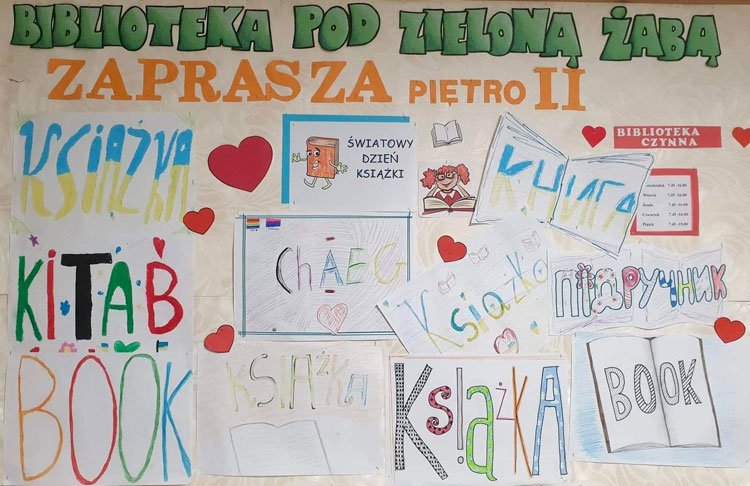 BIBLIOTEKA POD ZIELONĄ ŻABĄ
ZAPRASZA PIĘTRO II
KSIĄŻKA
ŚWIATOWY
DZIEŃ
KSIĄŻKI
КНИГА
BIBLIOTEKA
CZYNNA
Poniedziałek 7.45-16.00
Wtorek 7.45-16.00
Środa 7.45-16.00
Czwartek 7.45-16.00
Piątek 7.45-15.00
KİTAB
ChAEG
Książka
ПІДРУЧНИК
BOOK
KSIĄŻKA
KsIążKA
BOOK